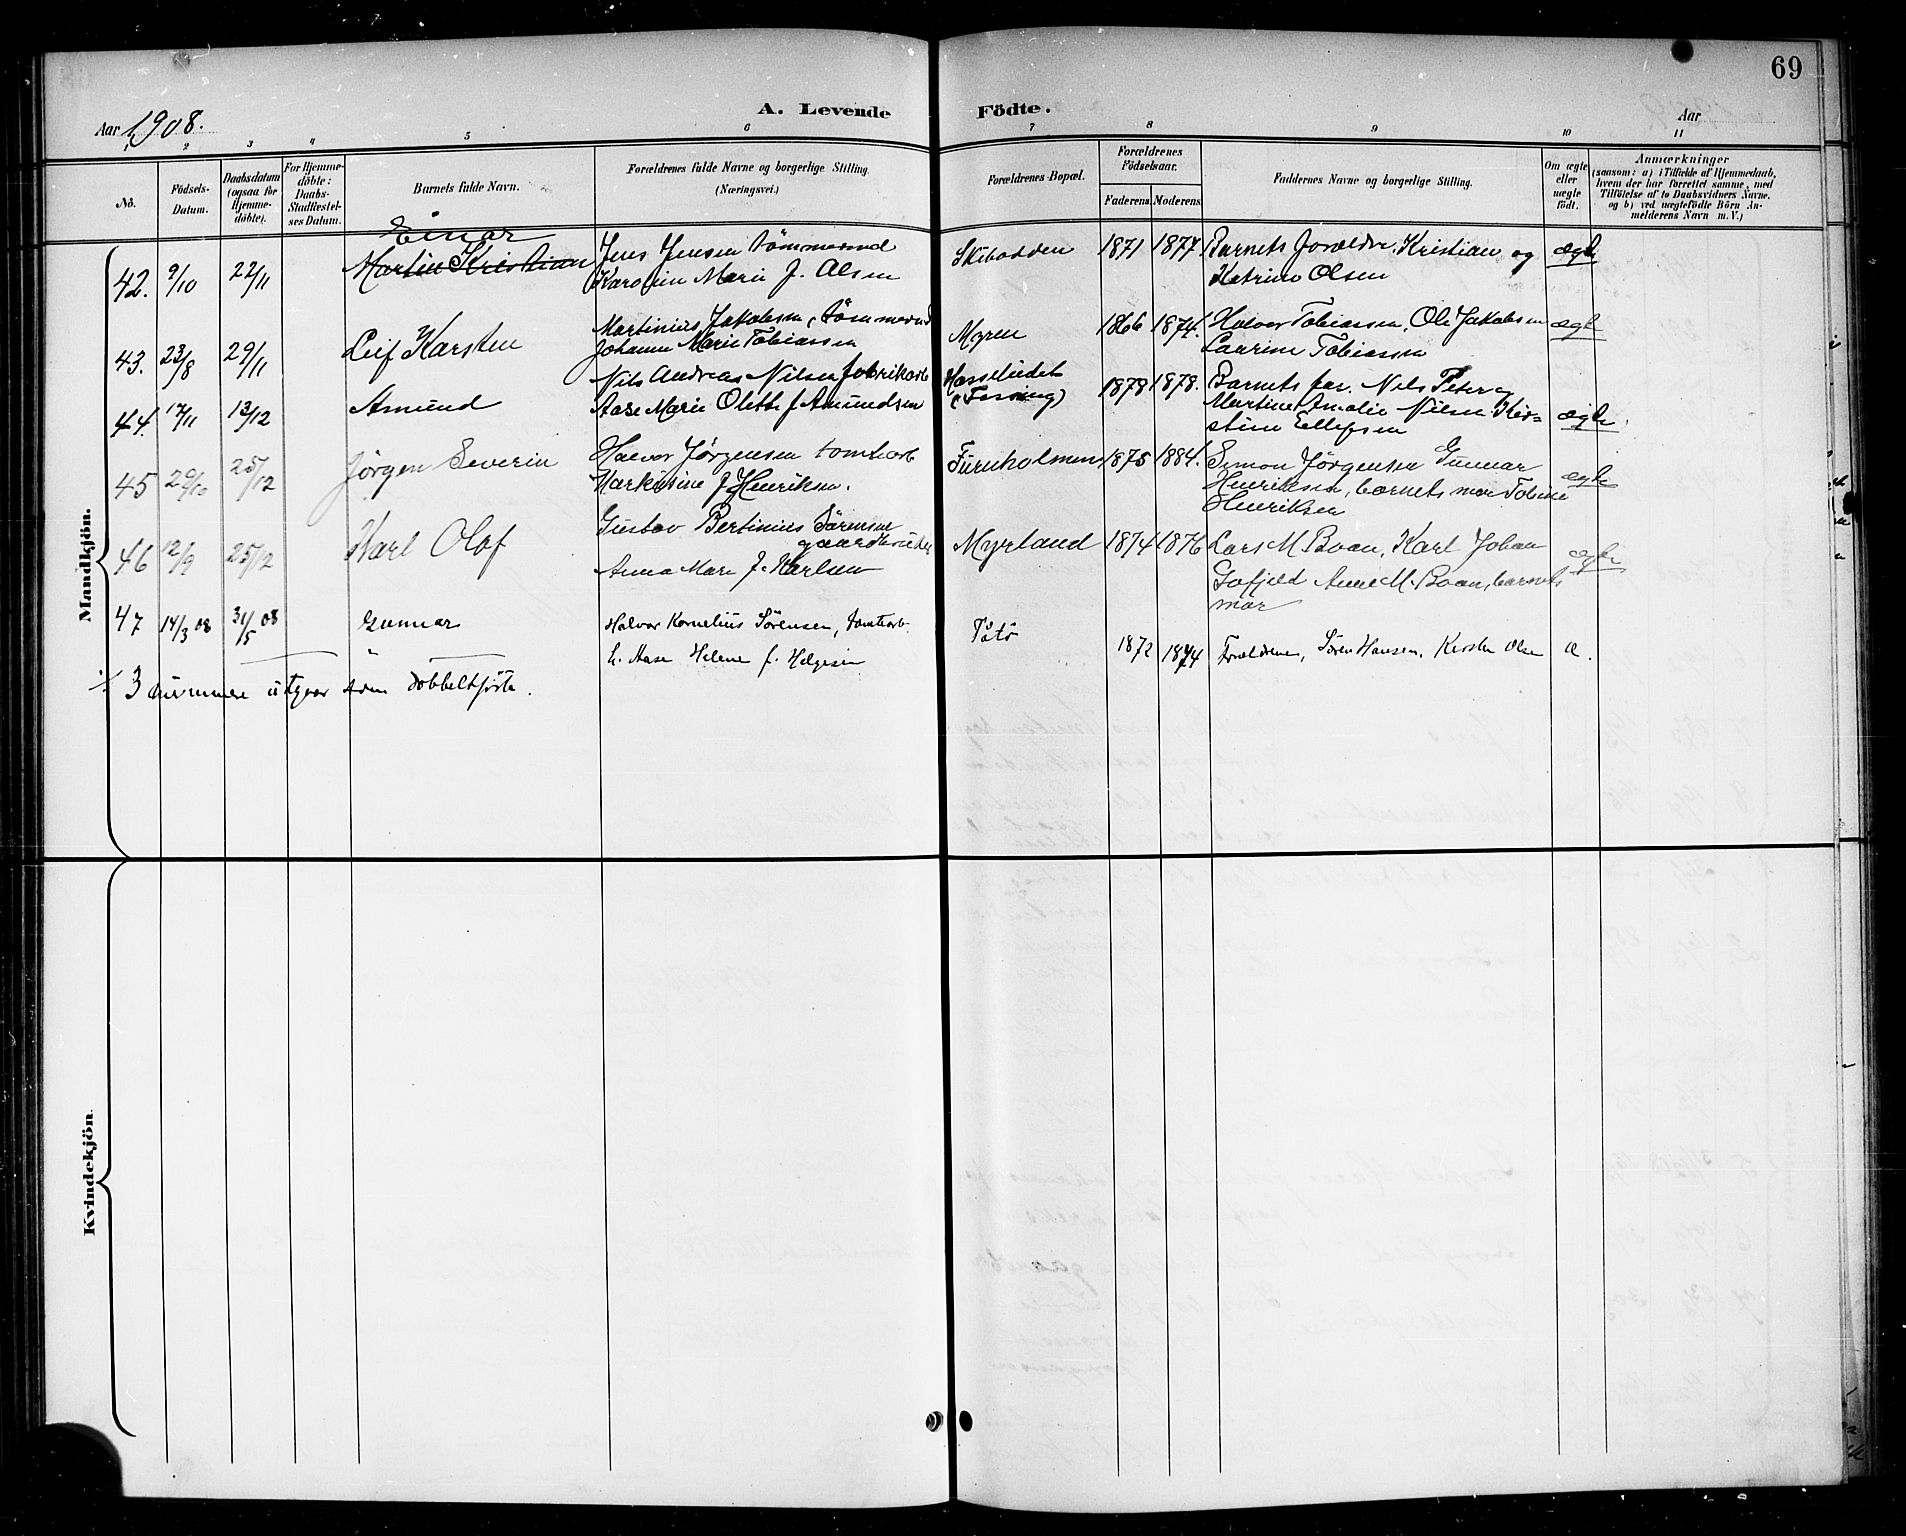 69
Aar 1908. A. Levende Födte. Aar
1 2 3 4 5 6 7 8 9 10 11
No. Födsels-Datum. Daabsdatum (ogsaa for Hjemme-döbte). For Hjemme-döbte: Daabs-Stadfæstel-ses Datum. Barnets fulde Navn. Forældrenes fulde Navne og borgerlige Stilling. (Næringsvei.) Forældrenes Bopæl. Forældrenes Födselsaar. Faderens Moderens Faddernes Navne og borgerlige Stilling. Om ægte eller uægte födt. Anmærkninger (saasom: a) i Tilfælde af Hjemmedaab, hvem der har forrettet samme, med Tilföielse af to Daabsvidners Navne. og b) ved uægtefödte Börn An-melderens Navn m. V.)
Mandkjön.
Einar
42. 9/10 22/11 Martin Kristian Jens Jensen tømmermd Skibodden 1871 1877 Barnets forældre, Kristian og ægte
Karolin Marie f. Olsen Katrine Olsen
43. 23/8 29/11 Leif Karsten Martinius Jakobsen, tømmermd Myren 1866 1874. Halvor Tobiassen, Ole Jakobsen ægte
Johanne Marie Tobiassen Laurine Tobiassen
44. 17/11 13/12 Amund Nils Andreas Nilsen fabrikarb 1878 1878. Barnets far. Nils Peter og ægte.
Aase Marie Olette f Amundsen Martine Amalie Nilsen Kir=
stine Ellefsen
45 29/10 25/12 Jörgen Severin Halvor Jørgensen tomtarb Furuholmen 1875 1884. Simon Jörgensen Gunnar ægte
Markusine f Henriksen. Henriksen, barnets mor Tobine
Henriksen
46 12/9 25/12 Karl Olaf Gustav Bertinius Sörensen Myrland 1874 1876 Lars M Boan, Karl Johan ægte
gaardbruker
Anna Marie f. Karlsen Anne M. Boan, barnets
mor
47 14/3 08 31/5 08 Gunnar Halvor Kornelius Sörensen, tomtearb. Tåtö 1872 1874 Forældrene, Sören Hansen, Kirsten Olsen æ.
h. Aase Helene f. Helgesen
÷ 3 nummere utgaar som dobbeltførte.
Kvindekjön.